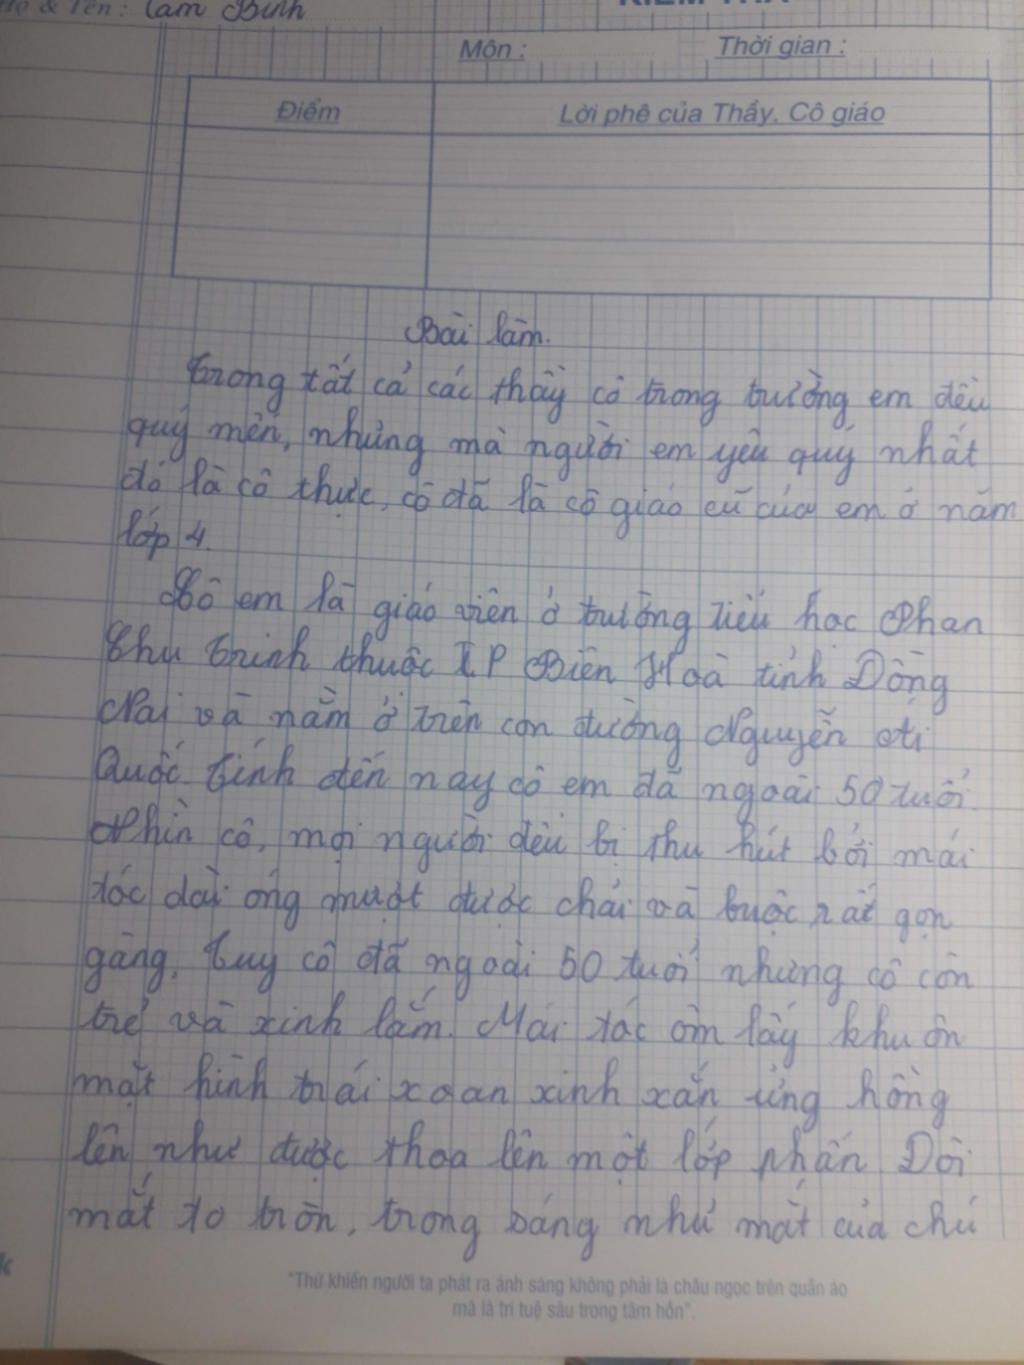 Họ & Tên: Tâm Bình
KIỂM TRA
Môn: Thời gian:
Điểm Lời phê của Thầy, Cô giáo
Bài làm.
Trong tất cả các thầy cô trong trường em đều
quý mến, nhưng mà người em yêu quý nhất
đó là cô Thực, cô đã là cô giáo cũ của em ở năm
lớp 4.
Cô em là giáo viên ở trường Tiểu học Phan
Chu Trinh thuộc TP Biên Hoà tỉnh Đồng
Nai và nằm ở trên con đường Nguyễn Ái
Quốc. Tính đến nay cô em đã ngoài 50 tuổi.
Nhìn cô, mọi người đều bị thu hút bởi mái
tóc dài óng mượt được chải và buộc rất gọn
gàng. Tuy cô đã ngoài 50 tuổi nhưng cô còn
trẻ và xinh lắm. Mái tóc ôm lấy khuôn
mặt hình trái xoan xinh xắn ửng hồng
lên như được thoa lên một lớp phấn. Đôi
mắt to tròn, trong sáng như mắt của chú
"Thứ khiến người ta phát ra ánh sáng không phải là châu ngọc trên quần áo
mà là trí tuệ sâu trong tâm hồn".